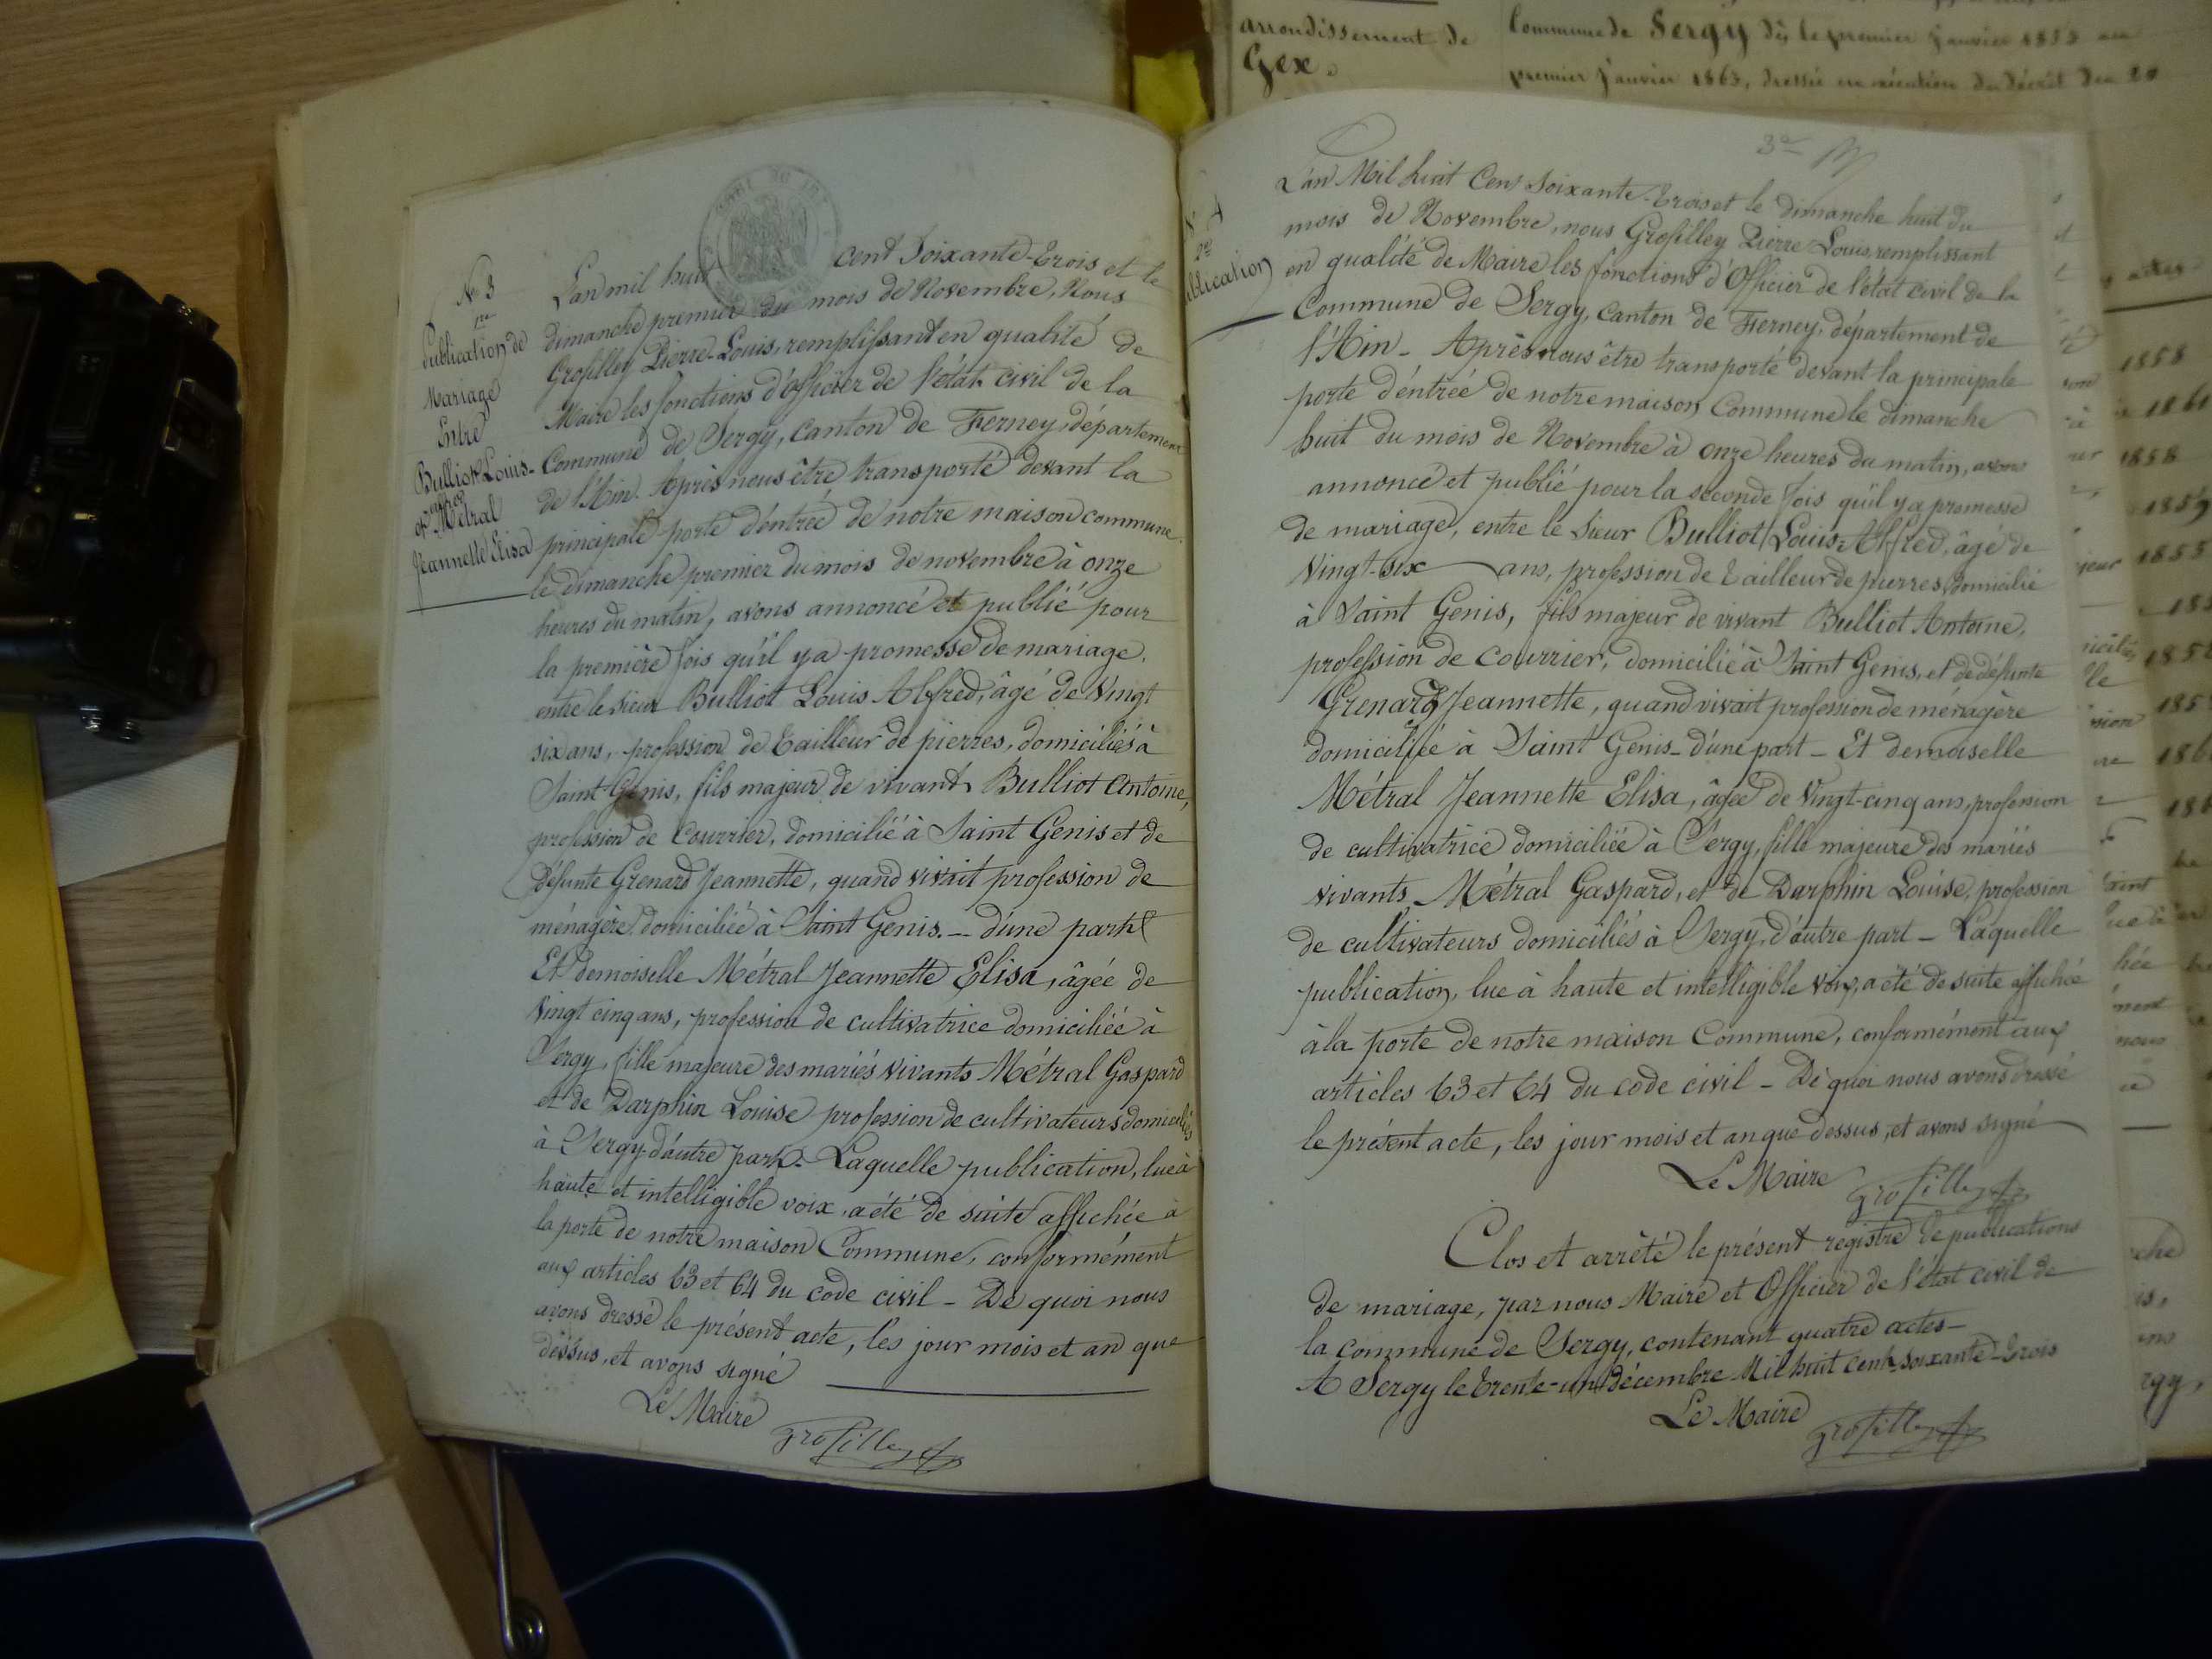 arrondissement de
Gex.
Commune de Sergy dès le premier janvier 1853 au
premier janvier 1863, dressée en exécution du décret du 20
N° 3
1re
Publication de
Mariage
Entre
Bulliot Louis-
Alfred
et Métral
Jeannette Elisa
L'an mil huit cent Soixante-Trois et le
dimanche premier du mois de Novembre, Nous
Grosfilley Pierre-Louis, remplissant en qualité de
Maire les fonctions d'officier de l'état civil de la
Commune de Sergy, Canton de Ferney, département
de l'Ain. Après nous être transporté devant la
principale porte d'éntrée de notre maison commune.
le dimanche premier du mois de novembre à onze
heures du matin, avons annoncé et publié pour
la première fois qu'il y a promesse de mariage.
entre le sieur Bulliot Louis Alfred, âgé de Vingt
six ans, profession de Tailleur de pierres, domiciliés à
Saint Genis, fils majeur de vivant Bulliot Antoine,
profession de Courrier, domicilié à Saint Genis et de
défunte Grenard Jeannette, quand vivait profession de
ménagère domiciliée à Saint Genis. — d'une part
Et demoiselle Métral Jeannette Elisa, âgée de
Vingt cinq ans, profession de cultivatrice domiciliée à
Sergy, fille majeure des mariés vivants Métral Gaspard
et de Darphin Louise profession de cultivateurs domiciliés
à Sergy d'autre part. Laquelle publication, lue à
haute et intelligible voix, a été de suite affichée à
la porte de notre maison Commune, conformément
aux articles 63 et 64 du code civil - De quoi nous
avons dressé le présent acte, les jour mois et an que
dessus, et avons signé
Le Maire
Grosfilley
N° 4
2e
ublication
3e
L'an Mil huit Cent Soixante-Trois et le dimanche huit du
mois de Novembre, nous Grosfilley Pierre-Louis, remplissant
en qualité de Maire les fonctions d'Officier de l'état civil de la
Commune de Sergy, Canton de Ferney, département de
l'Ain - Après nous être transporté devant la principale
porte d'éntrée de notre maison Commune le dimanche
huit du mois de Novembre à onze heures du matin, avons
annoncé et publié pour la seconde fois qu'il y a promesse
de mariage, entre le Sieur Bulliot Louis-Alfred, âgé de
Vingt-six ans, profession de Tailleur de pierres domicilié
à Saint Genis, fils majeur de vivant Bulliot Antoine,
profession de courrier, domicilié à Saint Genis, et de défunte
Grenard Jeannette, quand vivait profession de ménagère
domiciliée à Saint Genis - d'une part - Et demoiselle
Métral Jeannette Elisa, âgée de Vingt-cinq ans, profession
de cultivatrice domiciliée à Sergy, fille majeure des mariés
vivants Métral Gaspard, et de Darphin Louise, profession
de cultivateurs domiciliés à Sergy, d'autre part - Laquelle
publication, lue à haute et intelligible voix, a été de suite affichée
à la porte de notre maison Commune, conformément aux
articles 63 et 64 du code civil - De quoi nous avons dressé
le présent acte, les jour mois et an que dessus, et avons signé
Le Maire
Grosfilley
Clos et arrêté le présent registre de publications
de mariage, par nous Maire et Officier de l'état civil de
la commune de Sergy, contenant quatre actes -
A Sergy le Trente-un Décembre Mil huit cent soixante-Trois
Le Maire
Grosfilley
1858
1861
1858
1859
1853